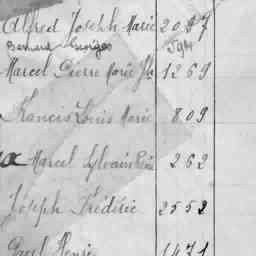 Alfred Joseph Marie 2097
Bernard Georges 594
Marcel Pierre Marie 1269
Francis Louis Marie 809
Marcel Sylvain 262
Joseph Frédéric 2552
Paul Henri 1471